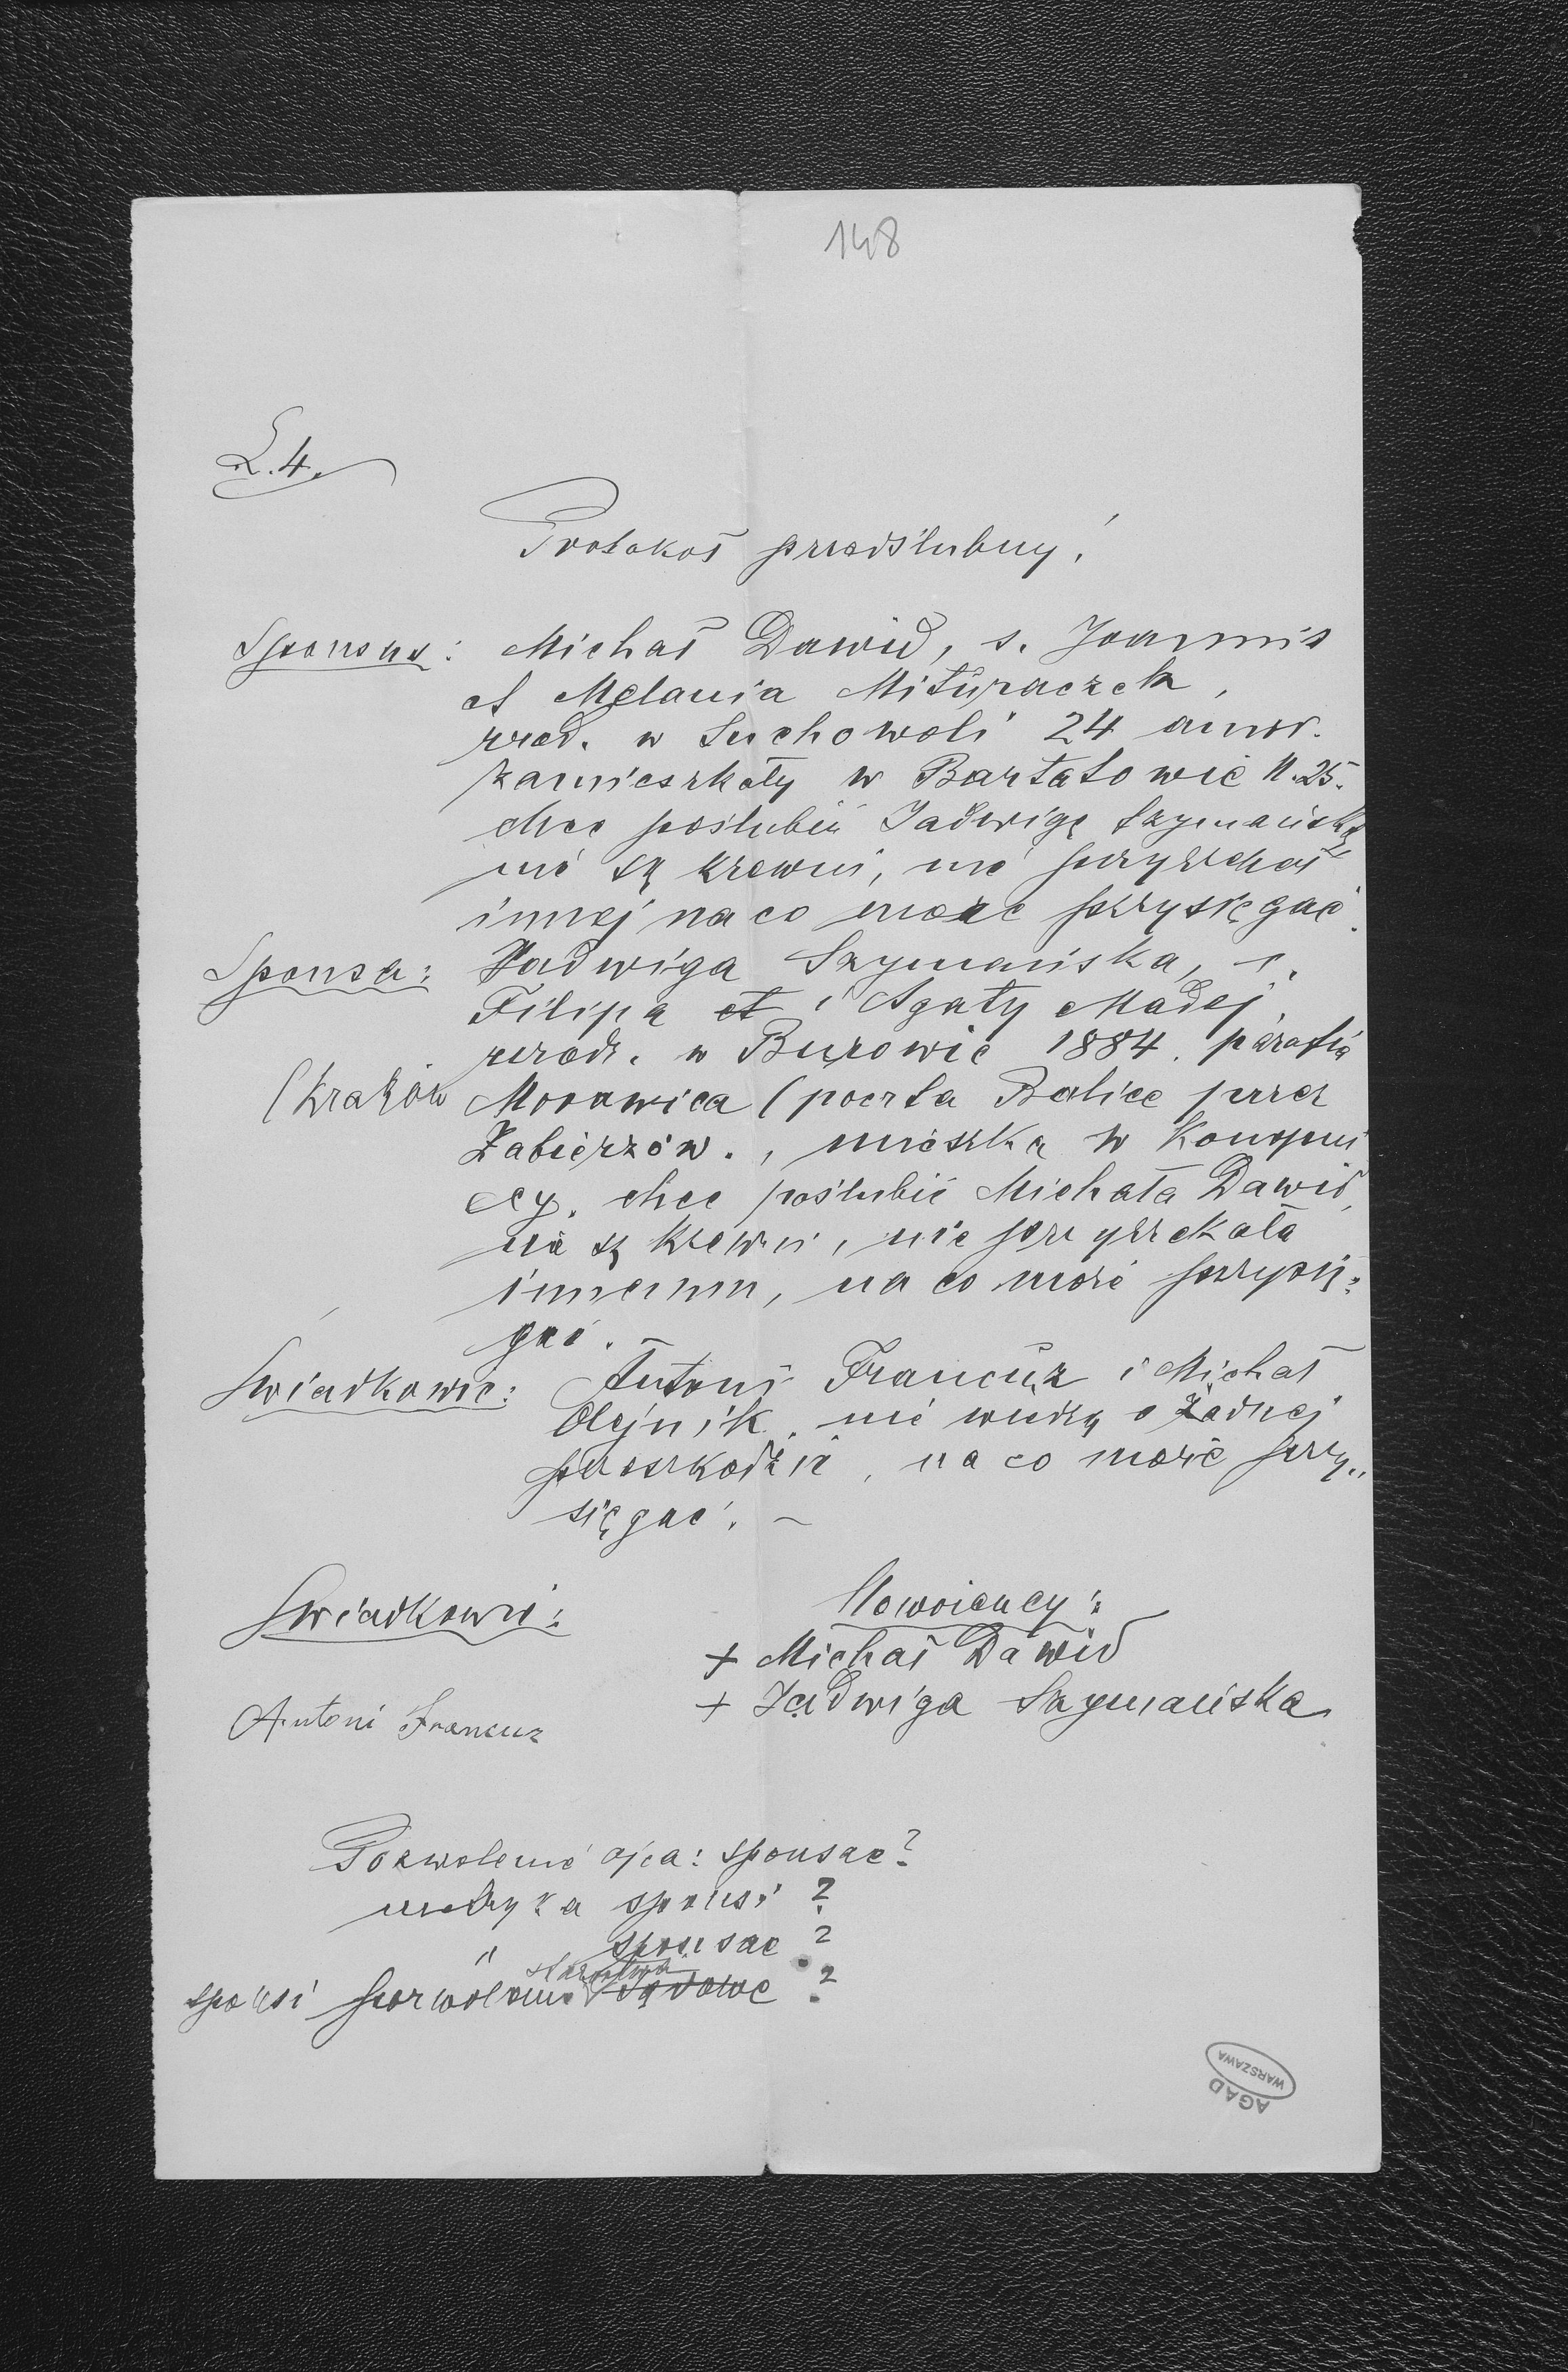 148
L. 4.
Protokół przedślubny.
Sponsus: Michał Dawid, s. Joannis
et Melania Mituraczek,
urod. w Suchowoli 24 annor.
zamieszkały w Bartatowie N. 25.
chce poślubić Jadwigę Szymańską
nie są krewni, nie przyrzekał
innej na co może przysięgać.
Sponsa: Jadwiga Szymańska, c.
Filipa et i Agaty Madej
urodz. w Burowie 1884. parafia
(Kraków Morawica (poczta Balice przez
Zabierzów., mieszka w Konopni
cy. chce poślubić Michała Dawid,
nie są krewni, nie przyrzekała
innemu, na co może przysię:
gać.
Świadkowie: Antoni Francuz i Michał
Olejnik. nie wiedzą o żadnej
przeszkodzie, na co może przy„
sięgać. –
Świadkowie: Nowożeńcy:
+ Michał Dawid
+ Jadwiga Szymańska
Antoni Francuz
Pozwolenie ojca: sponsae?
metryka sponsi ?
" sponsae ?
starostwa
sponsi pozwolenie sądowe ?
AGAD
WARSZAWA